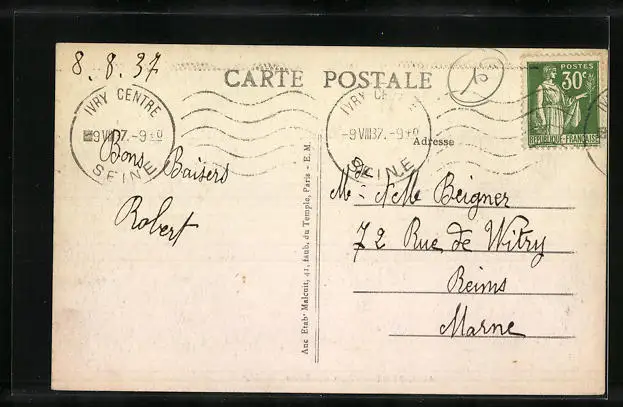 8.8.37
CARTE POSTALE
IVRY CENTRE
9 VIII 37
SEINE
IVRY CE
-9 VIII 37
SEINE
POSTES
30c
REPUBLIQUE FRANÇAISE
Adresse
Bons Baisers
Robert
Me & Mr Beigner
72 Rue de Witry
Reims
Marne
Anc Etab. Malcuit, 41, faub. du Temple, Paris - E.M.